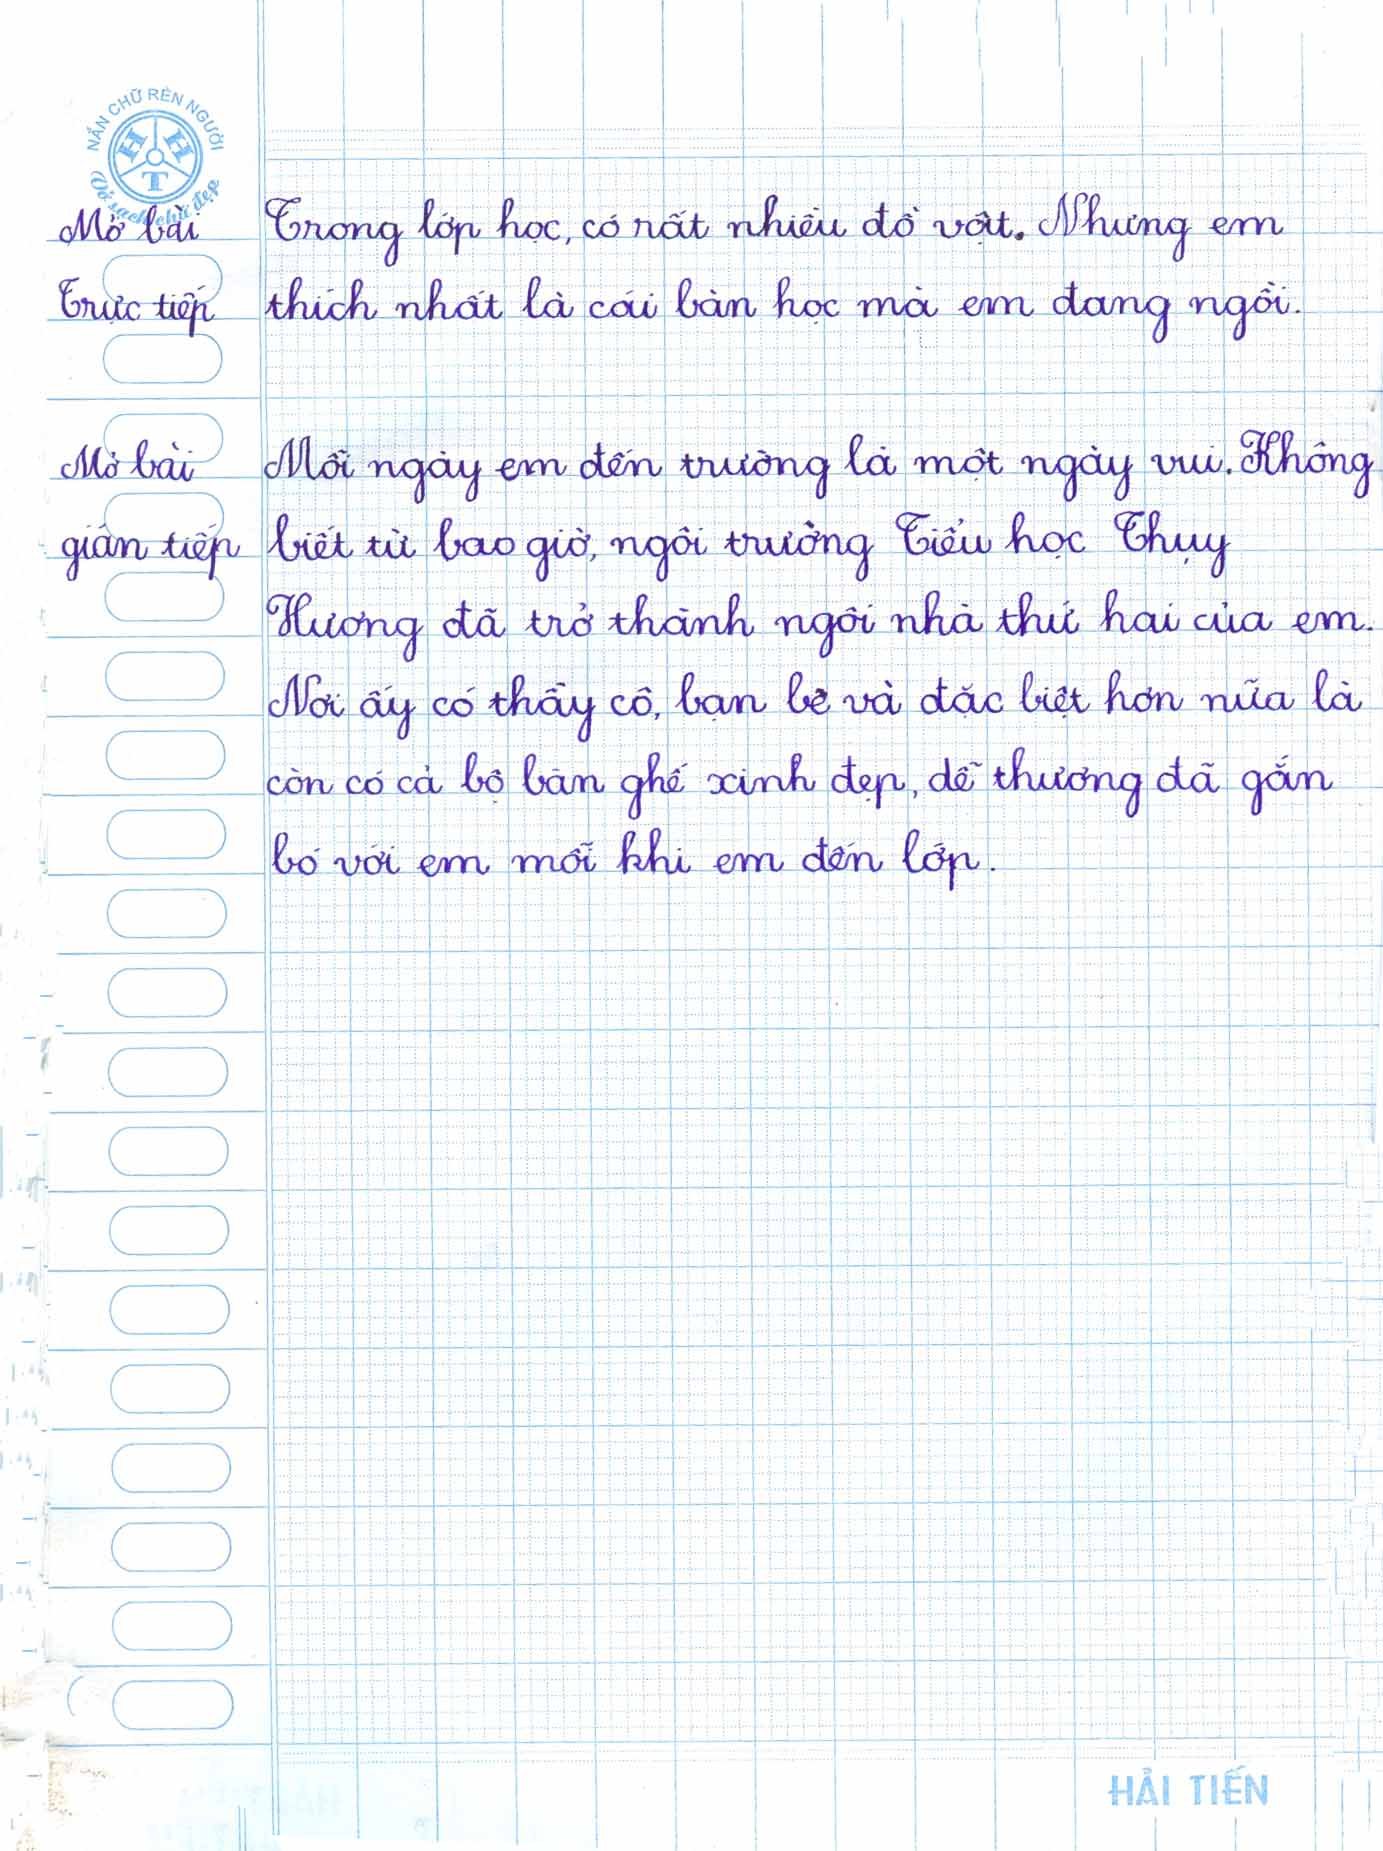 NẮN CHỮ RÈN NGƯỜI
H H T
Vở sạch chữ đẹp
Mở bài Trong lớp học, có rất nhiều đồ vật. Nhưng em
Trực tiếp thích nhất là cái bàn học mà em đang ngồi.
Mở bài Mỗi ngày em đến trường là một ngày vui. Không
gián tiếp biết từ bao giờ, ngôi trường Tiểu học Thụy
Hương đã trở thành ngôi nhà thứ hai của em.
Nơi ấy có thầy cô, bạn bè và đặc biệt hơn nữa là
còn có cả bộ bàn ghế xinh đẹp, dễ thương đã gắn
bó với em mỗi khi em đến lớp.
HẢI TIẾN